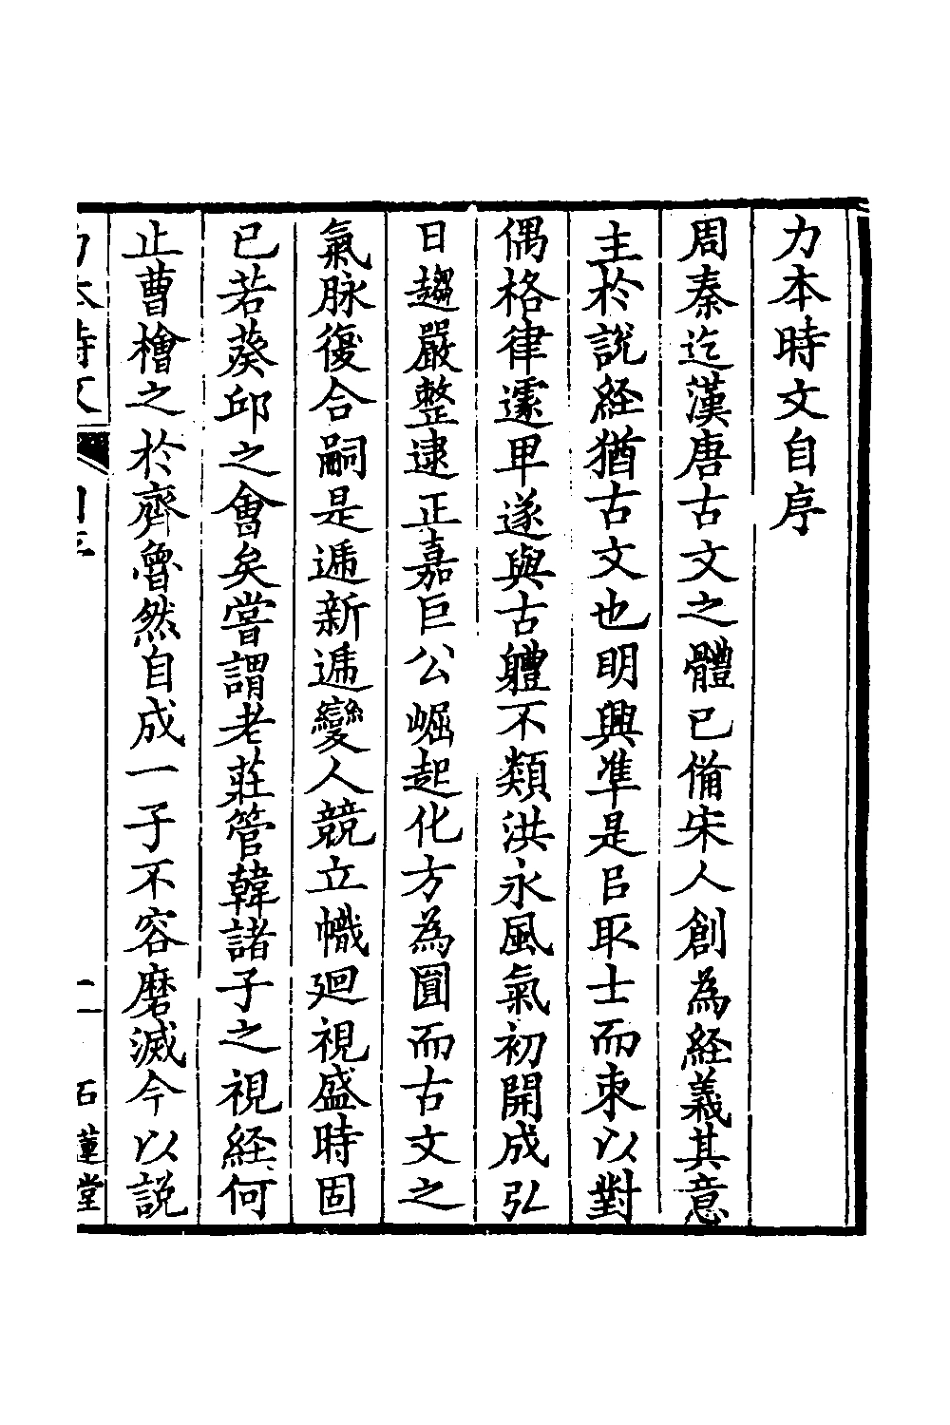 力本時文自序
周秦迄漢唐古文之體已備宋人創為経義其意
主於說経猶古文也明興準是㠯取士而朿以對
偶格律遽甲遂與古軆不類洪永風氣初開成弘
日趨嚴整逮正嘉巨公崛起化方為圓而古文之
氣脉復合嗣是遞新遞變人競立幟廻視盛時固
已若葵邱之會矣嘗謂老莊管韓諸子之視経何
止曹檜之於齊魯然自成一子不容磨滅今以説
力本時文
自序
二
石蓮堂